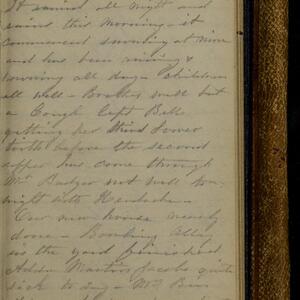 It rained all night and
rains this morning - it
commenced snowing at nine
and has been raining &
snowing all day - children
all well - well but
a Cough left Belle
getting her third lower
tooth before the second
upper has come through
Mr Badger not well to-
night with Headache -
Our new house nearly
done - Bowling Alley
in the yard finished
Martin Jacobs quite
sick to day - Mr